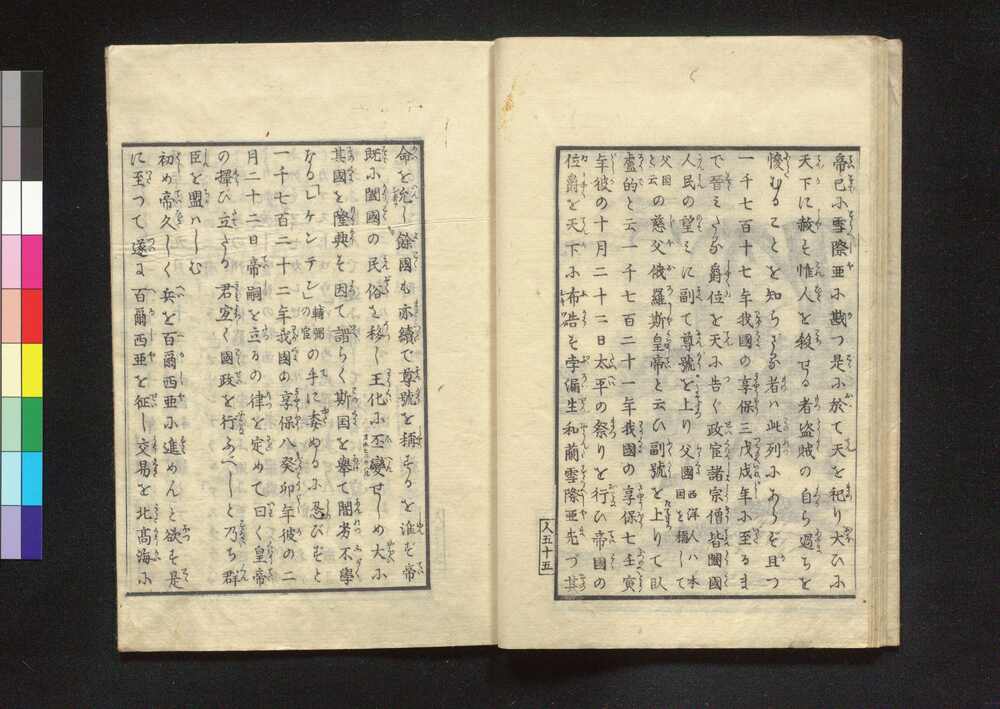 帝已に雪際亜に戡つ是に於て天を祀り大ひに
天下に赦を惟人を殺せる者盗賊の自ら過ちを
悛むることを知らざる者ハ此列にあらず且つ
一千七百十七年我國の享保三戊戌年に至るま
で晉ミたる爵位を天に告ぐ政宦諸宗僧皆闔國
人民の望ミに副て尊號を上り父國西洋人ハ本國を稱して
父国と云の慈父俄羅斯皇帝と云ひ副號を上りて
盧的と云一千七百二十一年我國の享保七壬寅
年彼の十月二十二日太平の祭りを行ひ帝國の
位爵を天下に布告す孛漏生和蘭雪際亜先づ其
入五十五
命を允し餘國も亦續で尊號を稱するを准ず帝
既に闔國の民俗を移し王化に丕變せしめ大に
其國を隆興す因て謂らく斯国を舉て闇劣不學
なる「レケンテン」輔弼の宦の手に委ぬるに忍びずと
一千七百二十二年我國の享保八癸卯年彼の二
月二十二日帝嗣を立るの律を定めて曰く皇帝
の擇び立たる君宜く國政を行ふべしと乃ち群
臣を盟ハしむ
初め帝久しく兵を百爾西亜に進めんと欲す是
に至つて遂に百爾西亜を征し交易を北髙海に